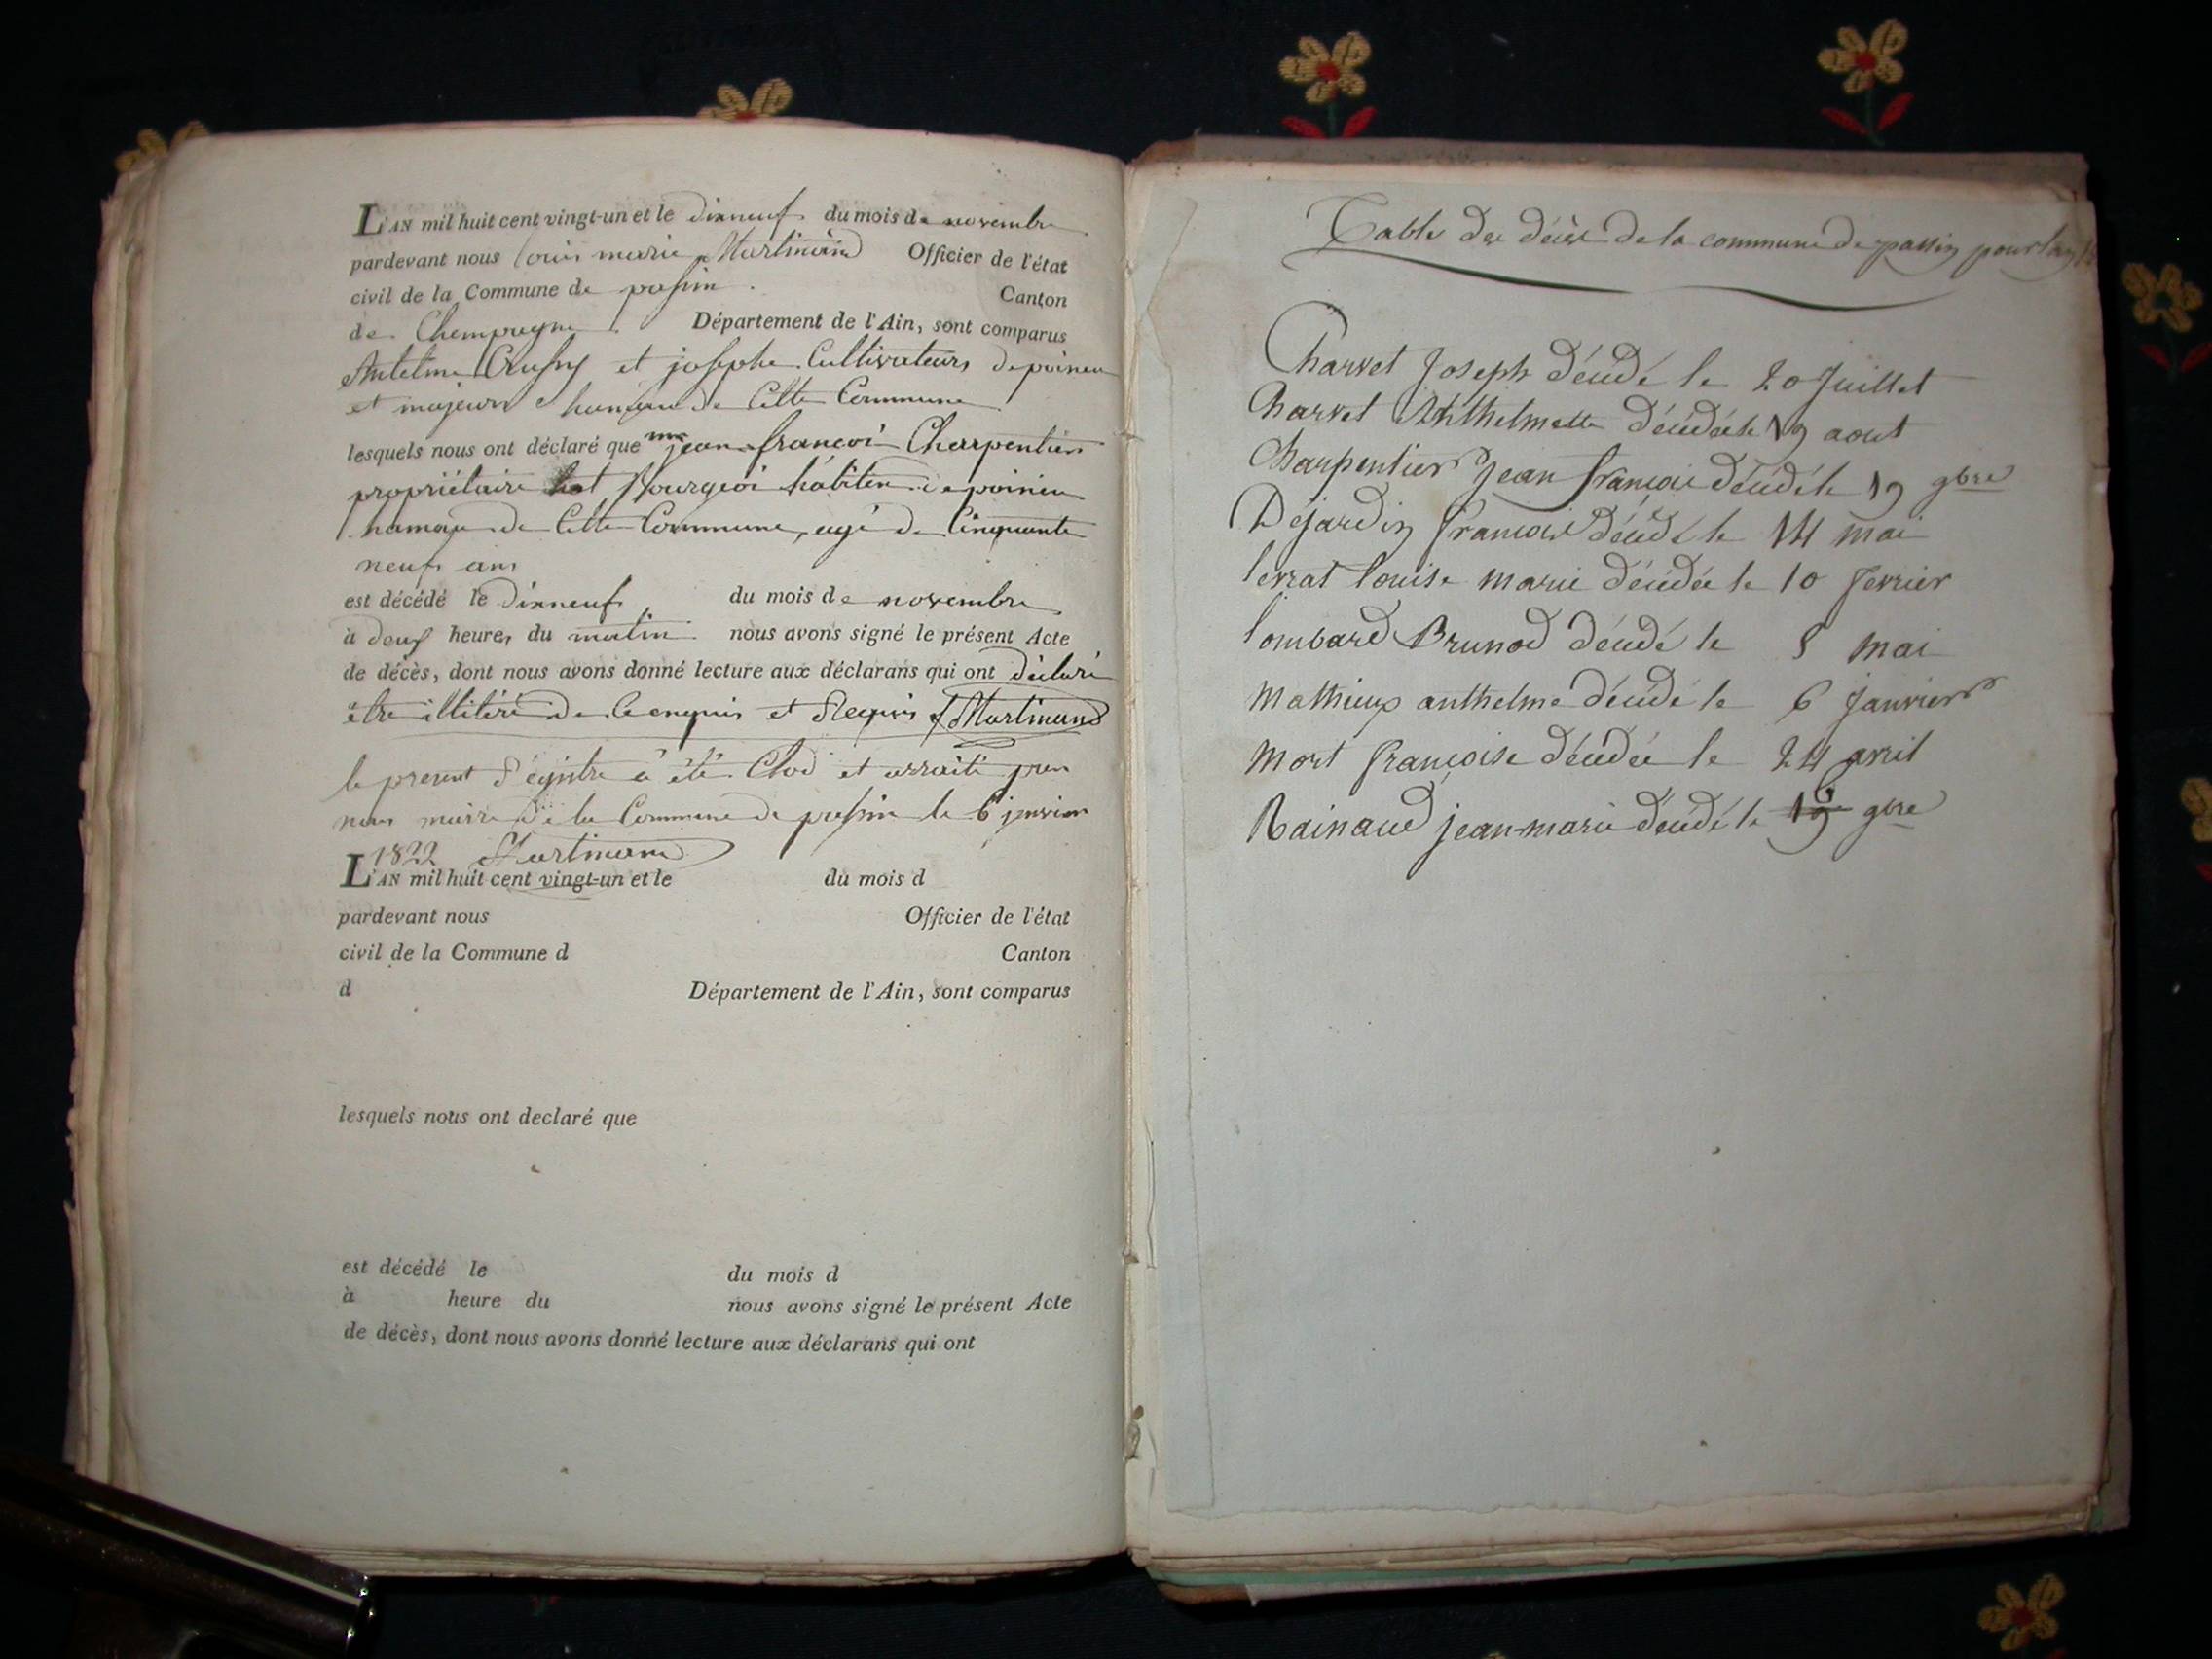 L'AN mil huit cent vingt-un et le dixneuf du mois de novembre
pardevant nous louis marie Martinand Officier de l'état
civil de la Commune de passin Canton
de Champagne Département de l'Ain, sont comparus
Antelme et josephe Cultivateurs de poirieu
et majeurs hameau de Cette Commune
lesquels nous ont déclaré que mr jean françoi Charpentier
propriétaire Bourgeoi habitan de poirieu
hamau de Cette Commune, agé de Cinquante
neuf ans
est décédé le dixneuf du mois de novembre
à deux heures du matin nous avons signé le présent Acte
de décès, dont nous avons donné lecture aux déclarans qui ont déclaré
être illitéré de Ce enquis et Requis Martinand
le present Régistre a été Clos et arraité par
nous maire de la Commune de passin le 6 janvier
1822 Martinand
L'AN mil huit cent vingt-un et le du mois d
pardevant nous Officier de l'état
civil de la Commune d Canton
d Département de l'Ain, sont comparus
lesquels nous ont declaré que
est décédé le du mois d
à heure du nous avons signé le présent Acte
de décès, dont nous avons donné lecture aux déclarans qui ont
Table des décès de la commune de passin pour l'an
Charvet Joseph décédé le 20 Juillet
Charvet Anthelmette décédée le 19 aout
Charpentier Jean françois décédé le 19 9bre
Dejardin françois décédé le 14 mai
louise marie décédée le 10 fevrier
lombard Brunod décédé le 5 mai
Mathieux anthelme décédé le 6 Janvier
Mort françoise décédée le 24 avril
Rainaud jean-marie décédé le 9bre